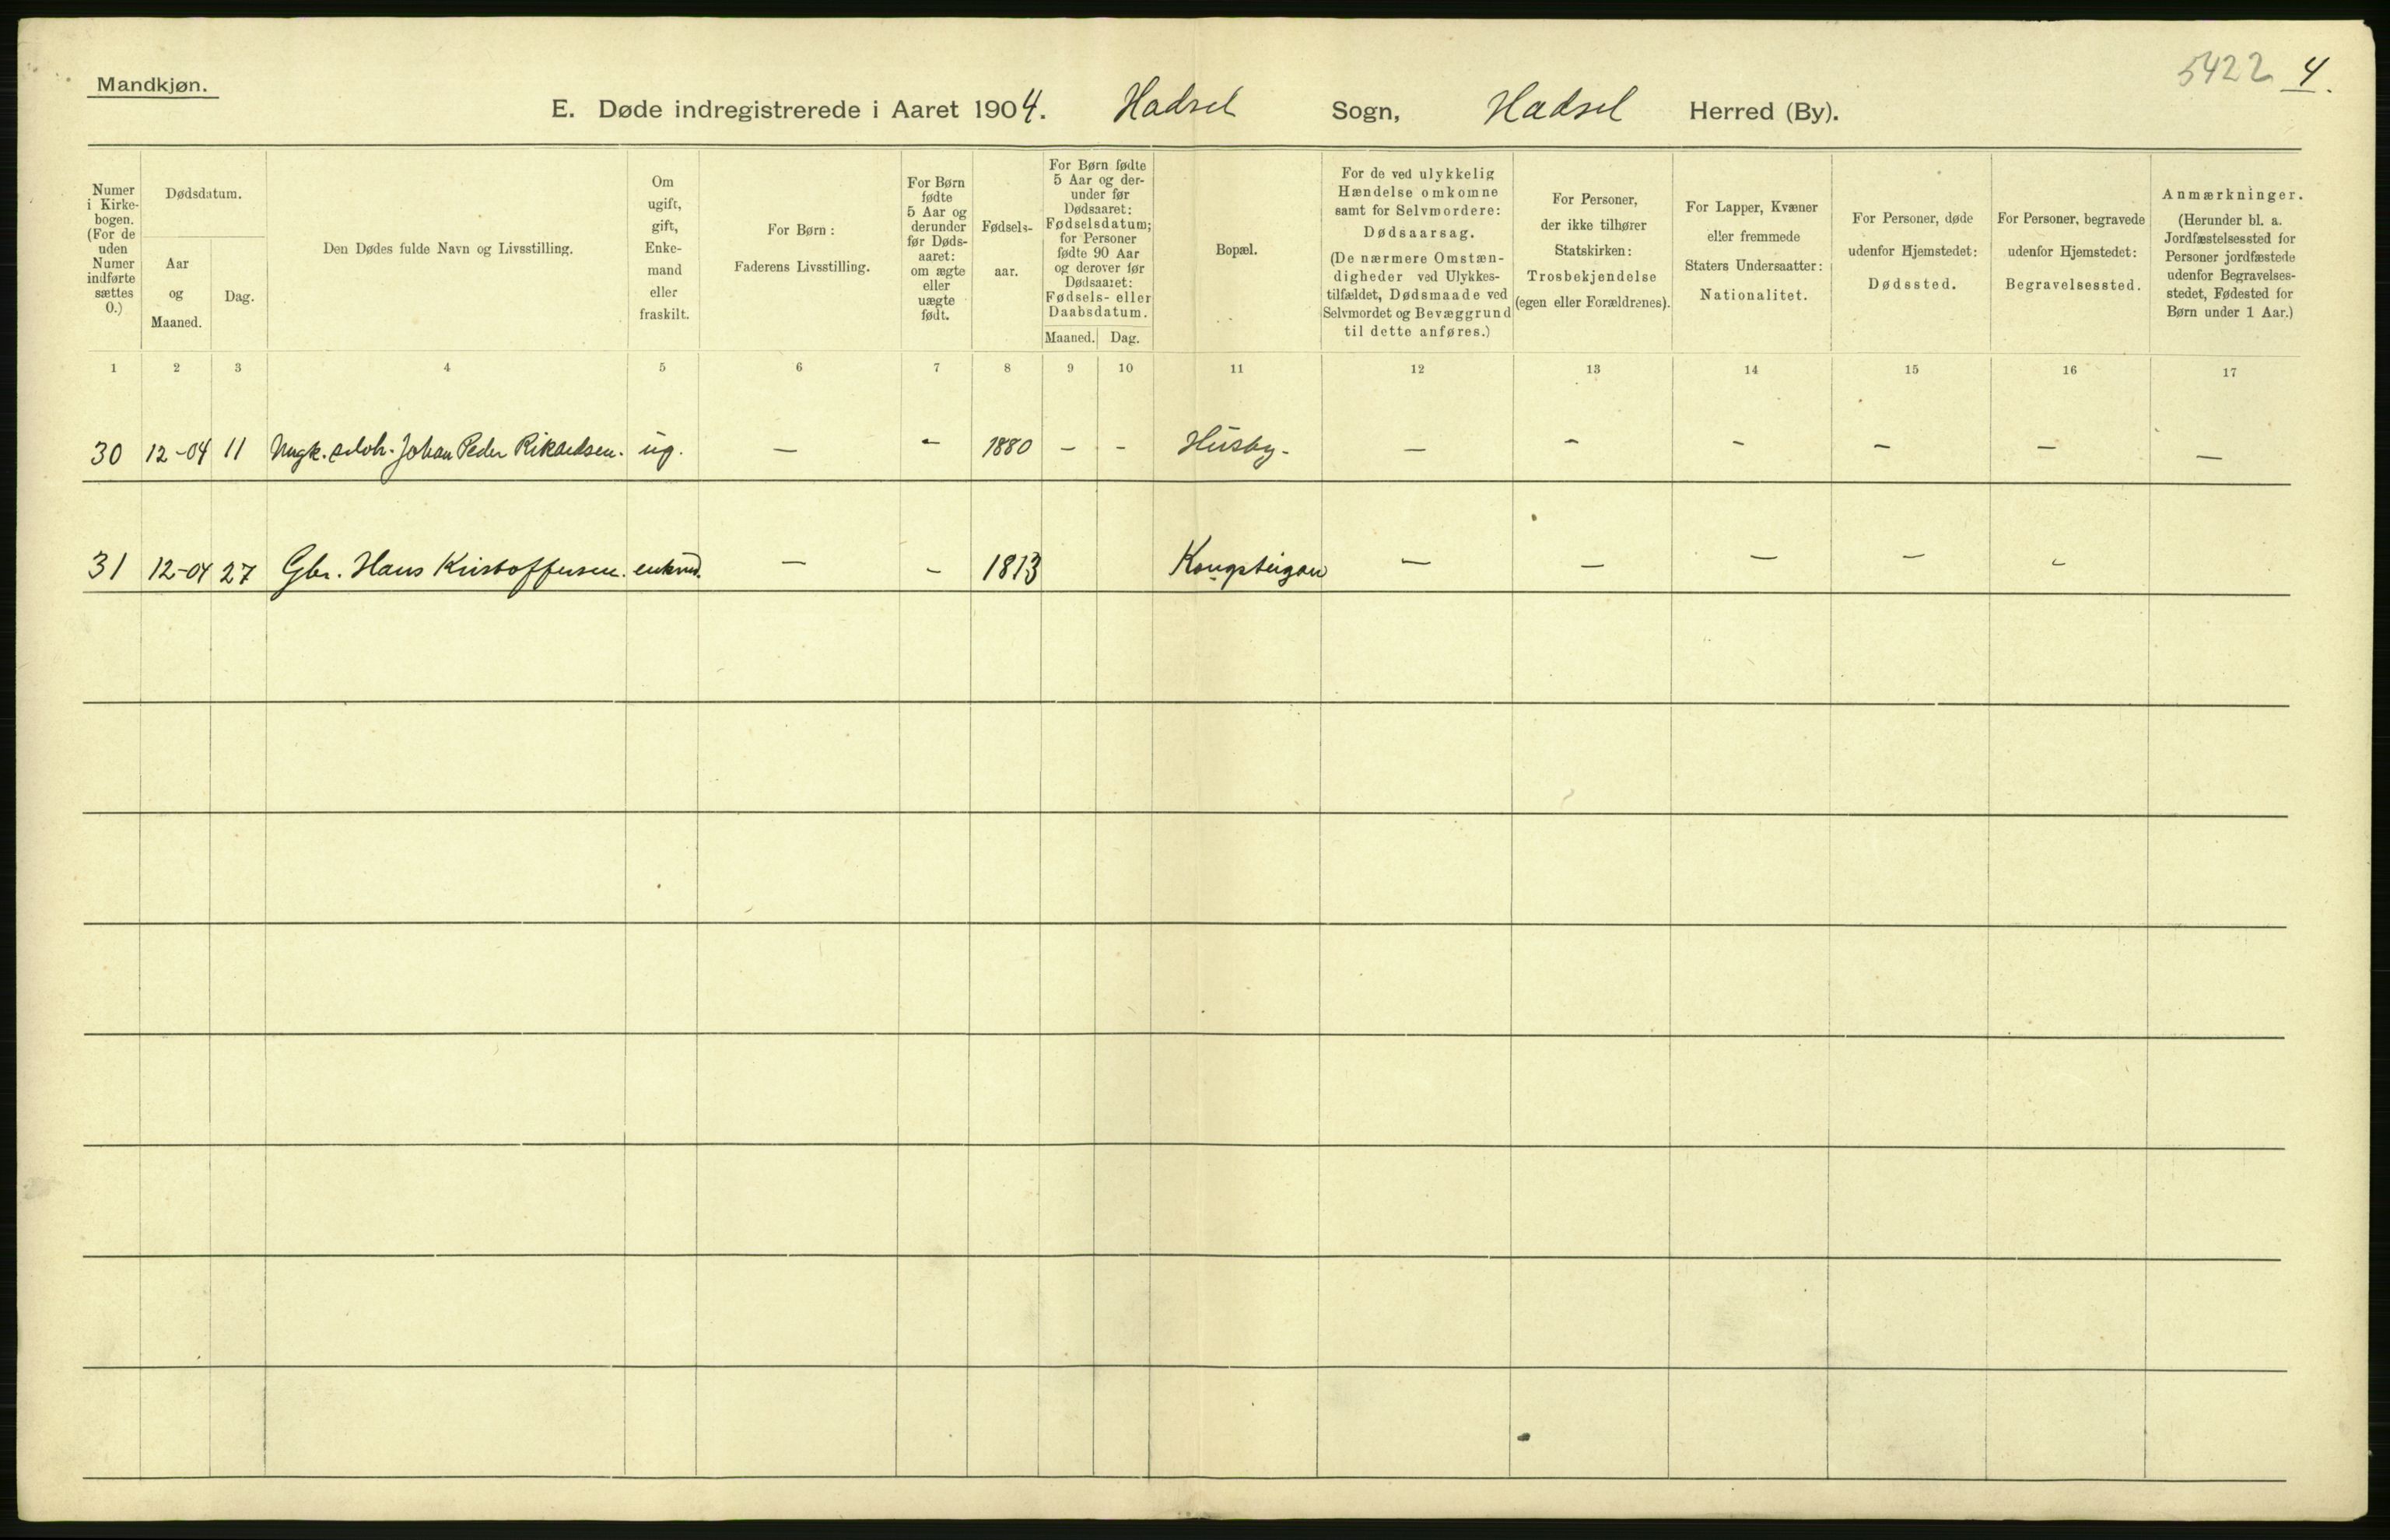 Mandkjøn.
5422 4.
E. Døde indregistrerede i Aaret 1904. Hadsel Sogn, Hadsel Herred (By).
Numer
i Kirke-
bogen.
(For de
uden
Numer
indførte
sættes
0.)
Dødsdatum.
Aar
og
Maaned.
Dag.
Den Dødes fulde Navn og Livsstilling.
Om
ugift,
gift,
Enke-
mand
eller
fraskilt.
For Børn:
Faderens Livsstilling.
For Børn
fødte
5 Aar og
derunder
før Døds-
aaret:
om ægte
eller
uægte
født.
Fødsels-
aar.
For Børn fødte
5 Aar og der-
under før
Dødsaaret:
Fødselsdatum;
for Personer
fødte 90 Aar
og derover før
Dødsaaret:
Fødsels- eller
Daabsdatum.
Maaned. Dag.
Bopæl.
For de ved ulykkelig
Hændelse omkomne
samt for Selvmordere:
Dødsaarsag.
(De nærmere Omstæn-
digheder ved Ulykkes-
tilfældet, Dødsmaade ved
Selvmordet og Bevæggrund
til dette anføres.)
For Personer,
der ikke tilhører
Statskirken:
Trosbekjendelse
(egen eller Forældrenes).
For Lapper, Kvæner
eller fremmede
Staters Undersaatter:
Nationalitet.
For Personer, døde
udenfor Hjemstedet:
Dødssted.
For Personer, begravede
udenfor Hjemstedet:
Begravelsessted.
Anmærkninger.
(Herunder bl. a.
Jordfæstelsessted for
Personer jordfæstede
udenfor Begravelses-
stedet, Fødested for
Børn under 1 Aar.)
1 2 3 4 5 6 7 8 9 10 11 12 13 14 15 16 17
30 12-04 11 Ungk. Johan Peder Rikardsen. ug. — - 1880 - - Husby. — - - — — —
31 12-04 27 Gbr. Hans Kristoffersen. enkmd. — - 1813 Kongsteigan — — — — -